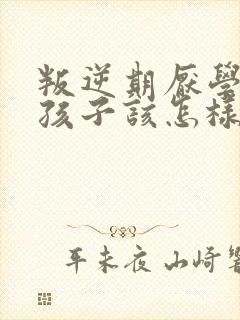 叛逆期厭學
孩子該怎樣
平未夜 山崎響